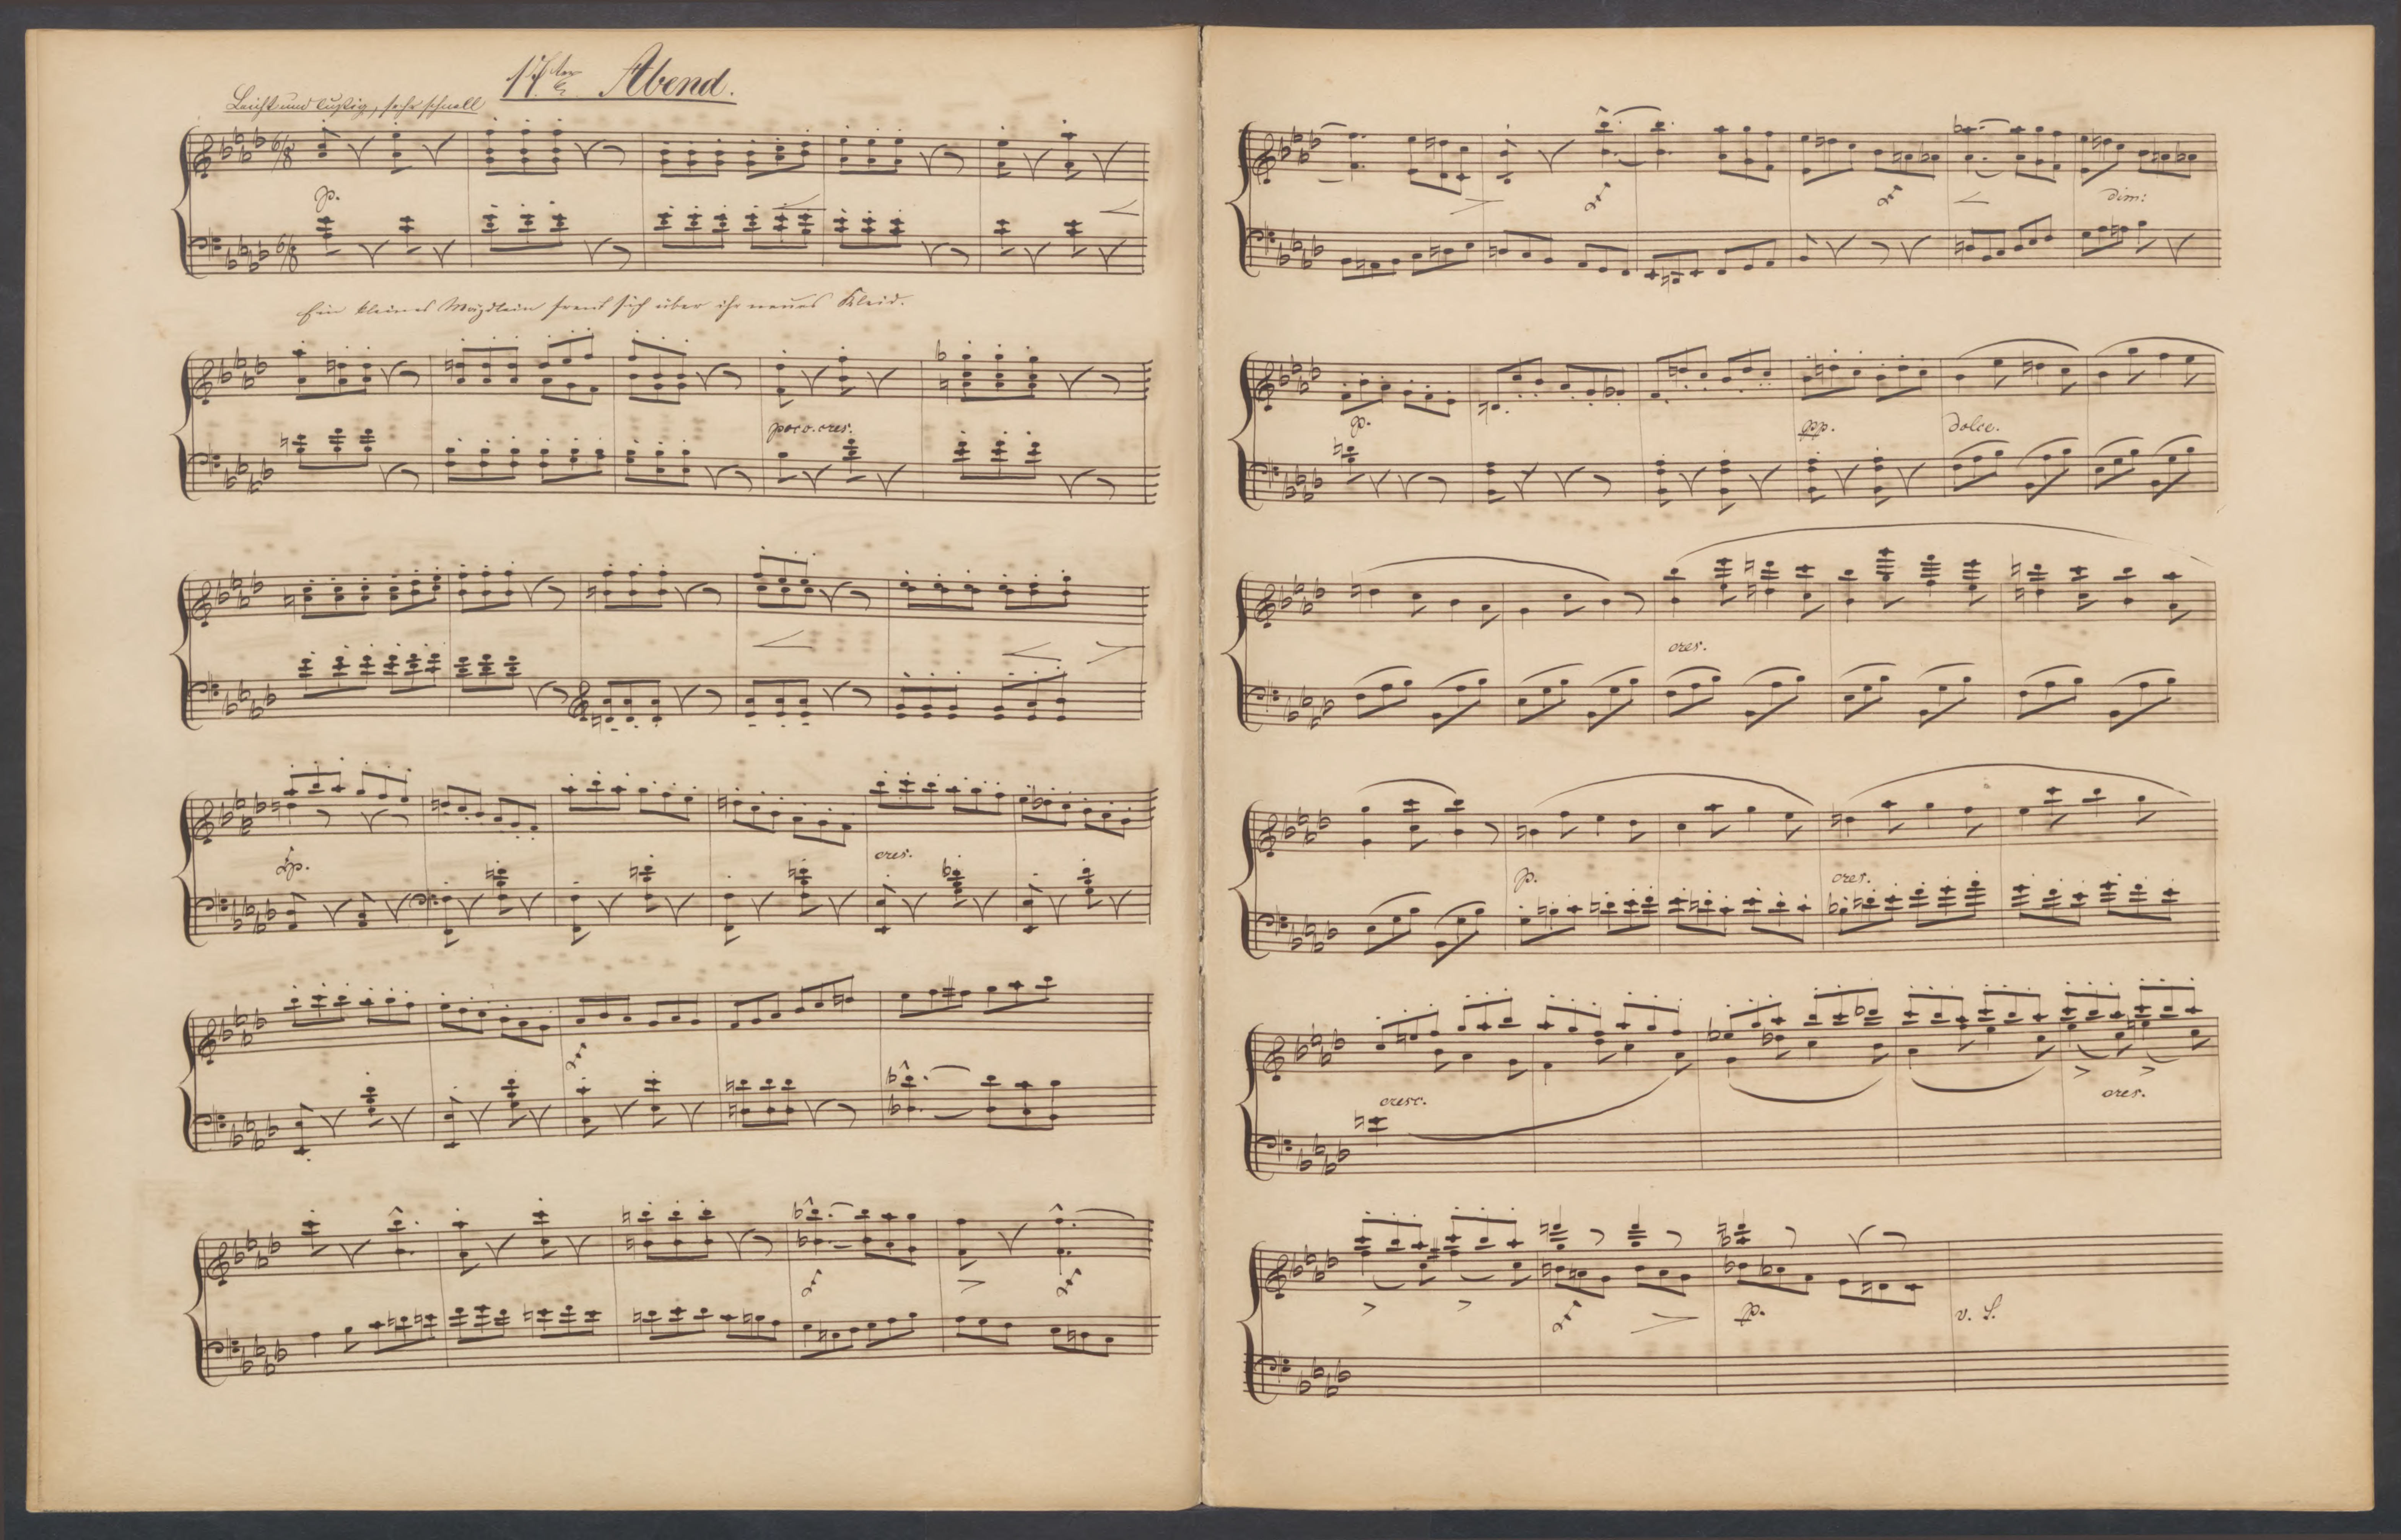 17ter Abend.
Leicht und lustig, sehr schnell
6/8
p.
6/8
Ein kleines Mägdlein freut sich über ihr neues Kleid.
poco. cres.
p.
cres.
dim:
p.
pp.
dolce.
cres.
p.
cres.
cresc.
cres.
p.
v. S.